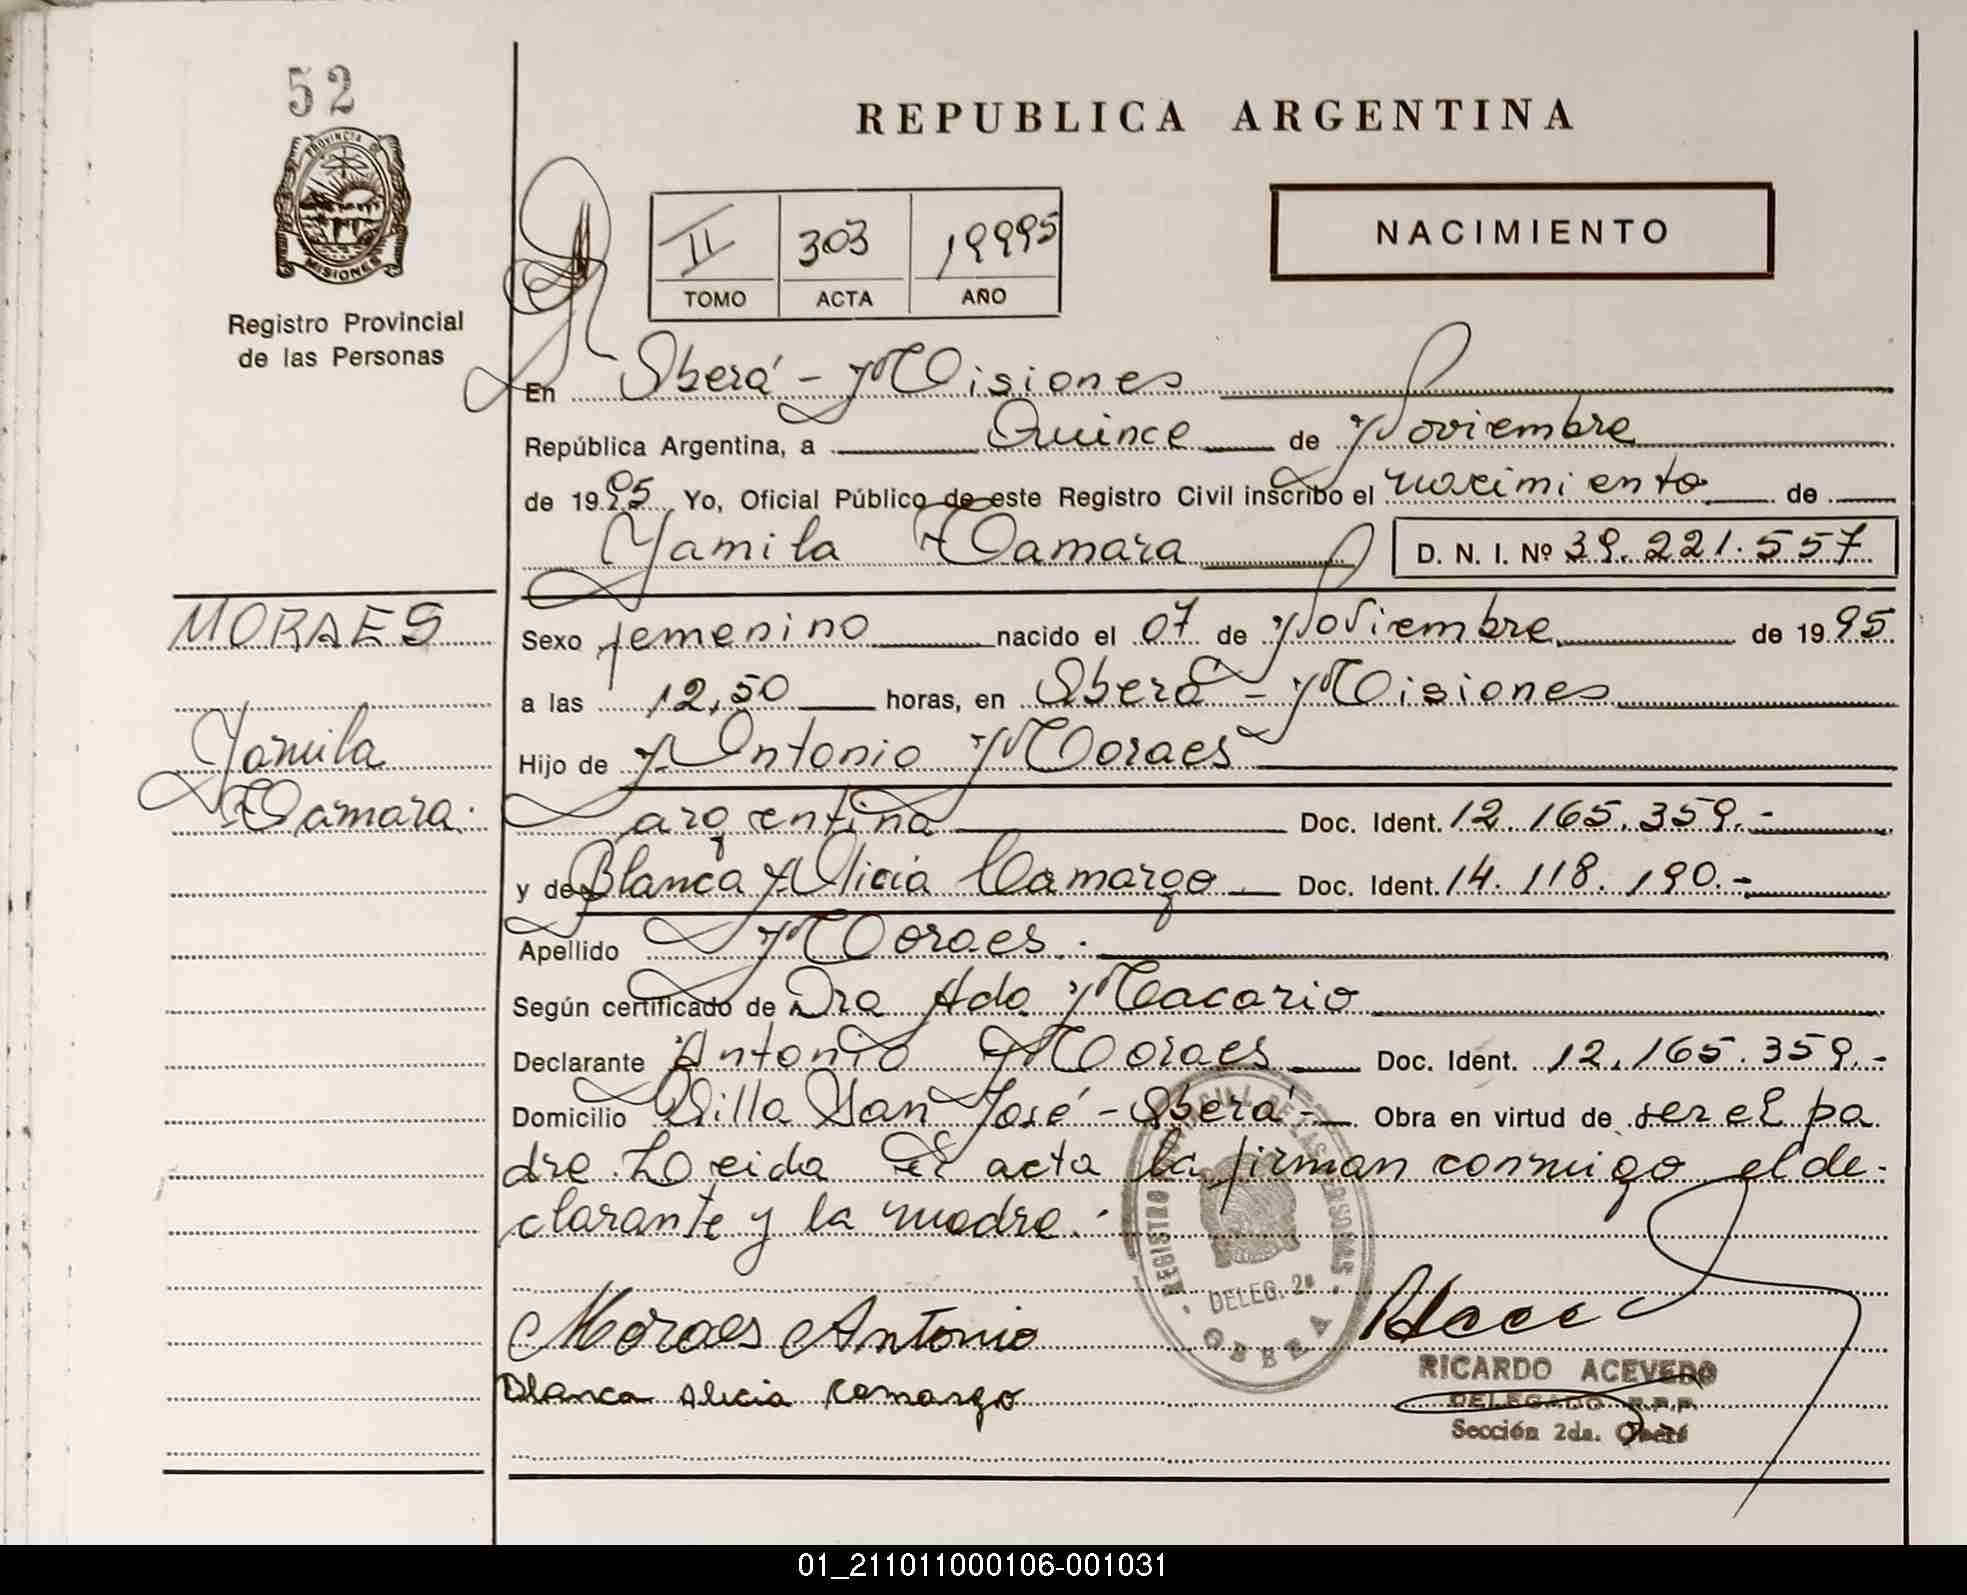 52
PROVINCIA DE
MISIONES
Registro Provincial
de las Personas
REPUBLICA ARGENTINA
NACIMIENTO
II 303 19995
TOMO ACTA AÑO
En Oberá - Misiones
República Argentina, a Quince de Noviembre
de 1995 Yo, Oficial Público de este Registro Civil inscribo el nacimiento de
Yamila Tamara D. N. I. Nº 39.221.557
MORAES
Yamila
Tamara.
Sexo femenino nacido el 07 de Noviembre de 1995
a las 12,50 horas, en Oberá - Misiones
Hijo de Antonio Moraes
argentina Doc. Ident. 12.165.359.-
y de Blanca Alicia Camargo Doc. Ident. 14.118.190.-
Apellido Moraes.
Según certificado de Dra Ada Macario
Declarante Antonio Moraes Doc. Ident. 12.165.359.-
Domicilio Villa San José - Oberá - Obra en virtud de ser el pa
dre. Leida el acta la firman conmigo el de-
clarante y la madre.-
REGISTRO PROVINCIAL DE LAS PERSONAS
DELEG. 2ª
OBERA
Moraes Antonio
Blanca Alicia Camargo
RICARDO ACEVEDO
DELEGADO R.P.P.
Sección 2da. Oberá
01_211011000106-001031